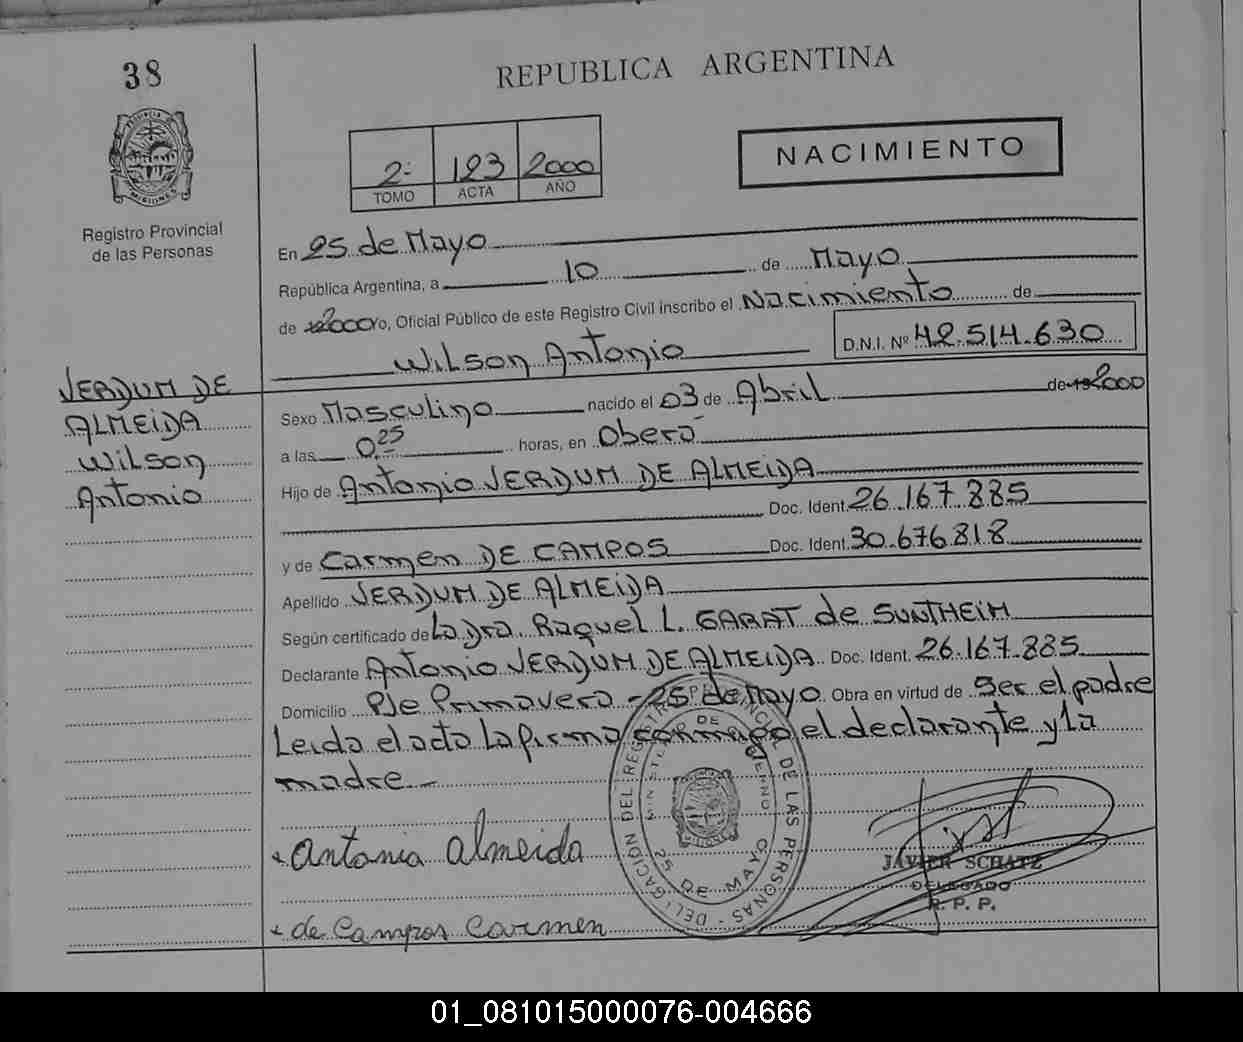 38
REPUBLICA ARGENTINA
2º 123 2000
TOMO ACTA AÑO
NACIMIENTO
Registro Provincial
de las Personas
En 25 de Mayo
República Argentina, a 10 de Mayo
de 2000 yo, Oficial Público de este Registro Civil inscribo el Nacimiento de
Wilson Antonio D.N.I. Nº 42.514.630
VERDUM DE
ALMEIDA
Wilson
Antonio
Sexo Masculino nacido el 03 de Abril de 2000
a las 0,25 horas, en Oberá
Hijo de Antonio VERDUM DE ALMEIDA
Doc. Ident. 26.167.885
y de Carmen DE CAMPOS Doc. Ident. 30.676.818
Apellido VERDUM DE ALMEIDA
Según certificado de La Dra. Raquel L. GARAT de SUNTHEIM
Declarante Antonio VERDUM DE ALMEIDA Doc. Ident. 26.167.885
Domicilio Pje Primavera - 25 de Mayo Obra en virtud de Ser el padre
Leida el acta La firma conmigo el declarante y La
madre
Antonia Almeida
de Campos Carmen
DELEGACIÓN DEL REGISTRO PROVINCIAL DE LAS PERSONAS
MINISTERIO DE GOBIERNO
25 DE MAYO
MISIONES
JAVIER SCHATZ
DELEGADO
R. P. P.
01_081015000076-004666